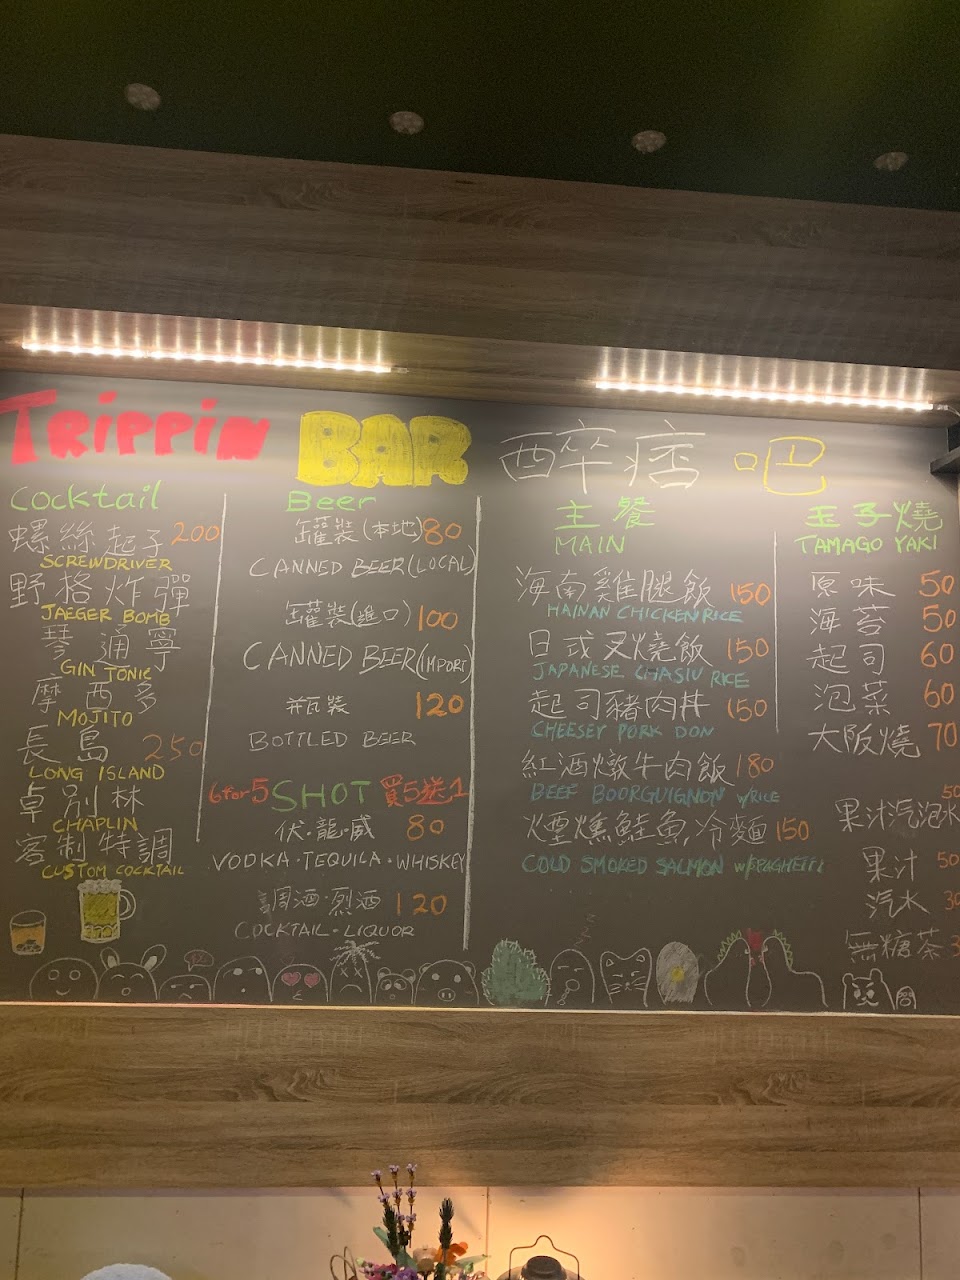 Trippin BAR 醉痞 吧
Cocktail
螺絲起子 200
SCREWDRIVER
野格炸彈
JAEGER BOMB
琴通寧
GIN TONIC
摩西多
MOJITO
長島 250
LONG ISLAND
卓別林
CHAPLIN
客制特調
CUSTOM COCKTAIL
Beer
罐裝(本地) 80
CANNED BEER(LOCAL)
罐裝(進口) 100
CANNED BEER(IMPORT)
瓶裝 120
BOTTLED BEER
6 for 5 SHOT 買5送1
伏·龍·威 80
VODKA·TEQUILA·WHISKEY
調酒·烈酒 120
COCKTAIL·LIQUOR
主餐
MAIN
海南雞腿飯 150
HAINAN CHICKEN RICE
日式叉燒飯 150
JAPANESE CHASIU RICE
起司豬肉丼 150
CHEESEY PORK DON
紅酒燉牛肉飯 180
BEEF BOORGUIGNON W/RICE
煙燻鮭魚冷麵 150
COLD SMOKED SALMON W/SPAGHETTI
玉子燒
TAMAGO YAKI
原味 50
海苔 50
起司 60
泡菜 60
大阪燒 70
50
果汁汽泡水
果汁 50
汽水 30
無糖茶